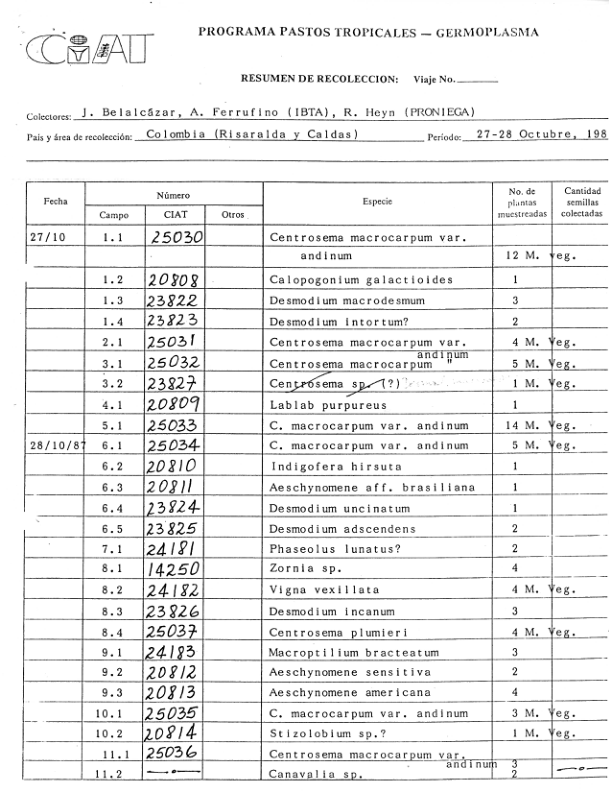 CIAT
PROGRAMA PASTOS TROPICALES — GERMOPLASMA
RESUMEN DE RECOLECCION: Viaje No.
Colectores: J. Belalcázar, A. Ferrufino (IBTA), R. Heyn (PRONIEGA)
País y área de recolección: Colombia (Risaralda y Caldas) Período: 27-28 Octubre, 198
Fecha Número Especie No. de plantas muestreadas Cantidad semillas colectadas
Campo CIAT Otros
27/10 1.1 25030 Centrosema macrocarpum var.
andinum 12 M. veg.
1.2 20808 Calopogonium galactioides 1
1.3 23822 Desmodium macrodesmum 3
1.4 23823 Desmodium intortum? 2
2.1 25031 Centrosema macrocarpum var. 4 M. Veg.
andinum
3.1 25032 Centrosema macrocarpum " 5 M. Veg.
3.2 23827 Centrosema sp. (?) 1 M. Veg.
4.1 20809 Lablab purpureus 1
5.1 25033 C. macrocarpum var. andinum 14 M. Veg.
28/10/87 6.1 25034 C. macrocarpum var. andinum 5 M. Veg.
6.2 20810 Indigofera hirsuta 1
6.3 20811 Aeschynomene aff. brasiliana 1
6.4 23824 Desmodium uncinatum 1
6.5 23825 Desmodium adscendens 2
7.1 24181 Phaseolus lunatus? 2
8.1 14250 Zornia sp. 4
8.2 24182 Vigna vexillata 4 M. Veg.
8.3 23826 Desmodium incanum 3
8.4 25037 Centrosema plumieri 4 M. Veg.
9.1 24183 Macroptilium bracteatum 3
9.2 20812 Aeschynomene sensitiva 2
9.3 20813 Aeschynomene americana 4
10.1 25035 C. macrocarpum var. andinum 3 M. Veg.
10.2 20814 Stizolobium sp.? 1 M. Veg.
11.1 25036 Centrosema macrocarpum var.
andinum 3
11.2 —•— Canavalia sp. 2 —•—